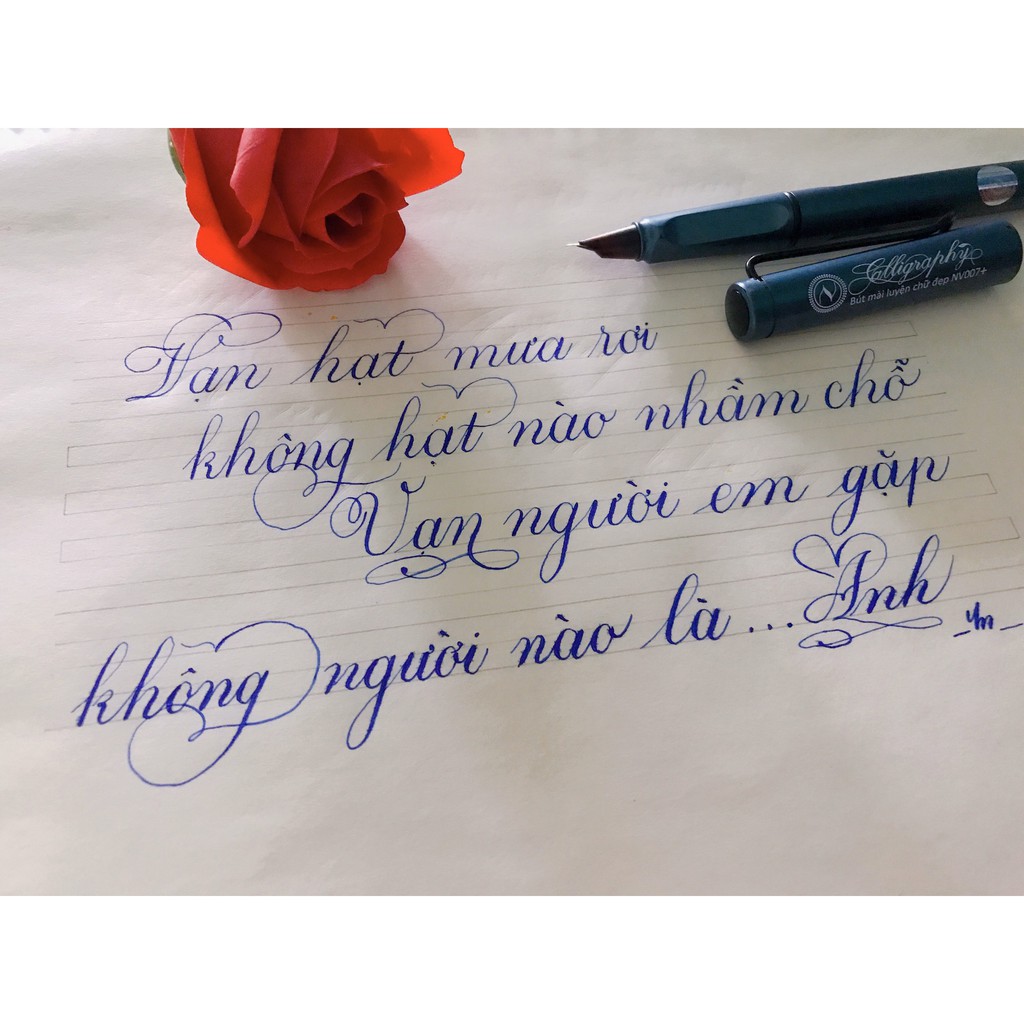 Vạn hạt mưa rơi
không hạt nào nhầm chỗ
Vạn người em gặp
không người nào là ... Anh
Calligraphy
N
Bút mài luyện chữ đẹp NV007+